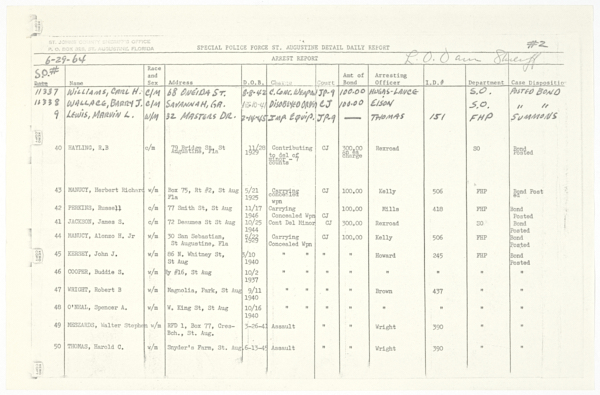 ST. JOHNS COUNTY SHERIFF'S OFFICE
ST. AUGUSTINE, FLORIDA
SPECIAL POLICE FORCE ST. AUGUSTINE DETAIL DAILY REPORT
#2
6-29-64
ARREST REPORT
L.O. Davis Sheriff
S.O.#
Name Race and Sex Address D.O.B. Charge Court Amt of Bond Arresting Officer I.D.# Department Case Disposition
11337 WILLIAMS, CARL H. C/M 68 ONEIDA ST. 8-8-42 C. CONC. WEAPON JP-9 100.00 S.O. POSTED BOND
11338 WALLACE, BARRY J. C/M SAVANNAH, GA. DISORDERLY CJ 100.00 EISON S.O. " "
9 LEWIS, MARVIN L. W/M 32 MASTERS DR. 2-14-45 IMP EQUIP. JP-9 — THOMAS 151 FHP SUMMONS
40 79 Bridge St, St Augustine, Fla 11/28 1929 Contributing to del of minor - 7 counts CJ 500.00 on ea charge Rexroad SO Bond Posted
43 MANUCY, Herbert Richard w/m Box 75, Rt #2, St Aug Fla 5/21 1925 Carrying concealed wpn CJ 100.00 Kelly 506 FHP Bond Post
42 PERKINS, Russell c/m 77 Smith St, St Aug 11/17 1946 Carrying Concealed Wpn CJ 100.00 Mills 418 FHP Bond Posted
41 JACKSON, James S. c/m 72 Desumas St St Aug 10/25 1944 Cont Del Minor CJ 500.00 Rexroad SO Bond Posted
44 MANUCY, Alonzo H. Jr w/m 50 San Sebastian, St Augustine, Fla 5/22 1929 Carrying Concealed Wpn CJ 100.00 Kelly 506 FHP Bond Posted
45 John J. w/m 86 N. Whitney St, St Aug 3/10 1940 " " " " Howard 245 FHP Bond Posted
46 COOPER, Buddie S. w/m Hy #16, St Aug 10/2 1937 " " " " " " " "
47 WRIGHT, Robert B w/m Magnolia, Park, St Aug 9/11 1940 " " " " Brown 437 " "
48 O'NEAL, Spencer A. w/m W. King St, St Aug 10/16 1940 " " " " " " " "
49 Walter Stephen w/m RFD 1, Box 77, St. Aug. 5-26-41 Assault " " Wright 390 " "
50 THOMAS, Harold C. w/m Snyder's Farm, St. Aug. 6-13-45 Assault " " Wright 390 " "